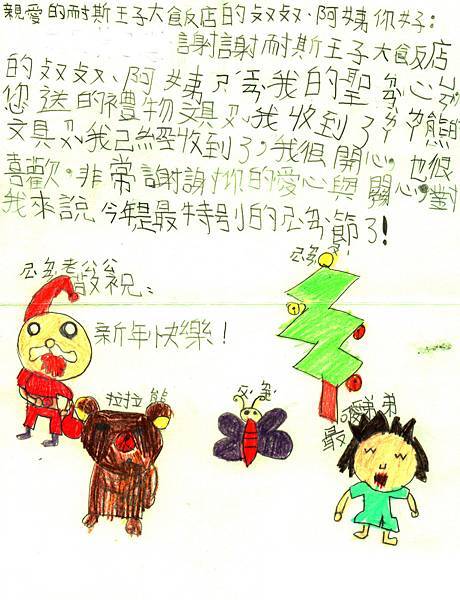 親愛的耐斯王子大飯店的叔叔、阿姨你好:
謝謝耐斯王子大飯店
的叔叔、阿姨 我的聖誕心
您送的禮物文具 我收到了 熊
文具 我已經收到了,我很開心,也很
喜歡。非常謝謝你的愛心與關心,對
我來說今年是最特別的聖誕節了!
老公公
敬祝:
新年快樂!
拉拉熊
最愛弟弟